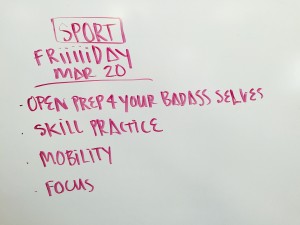 SPORT
FRiiiiiDAY
MAR 20
· OPEN PREP 4 YOUR BADASS SELVES
· SKILL PRACTICE
· MOBILITY
· FOCUS